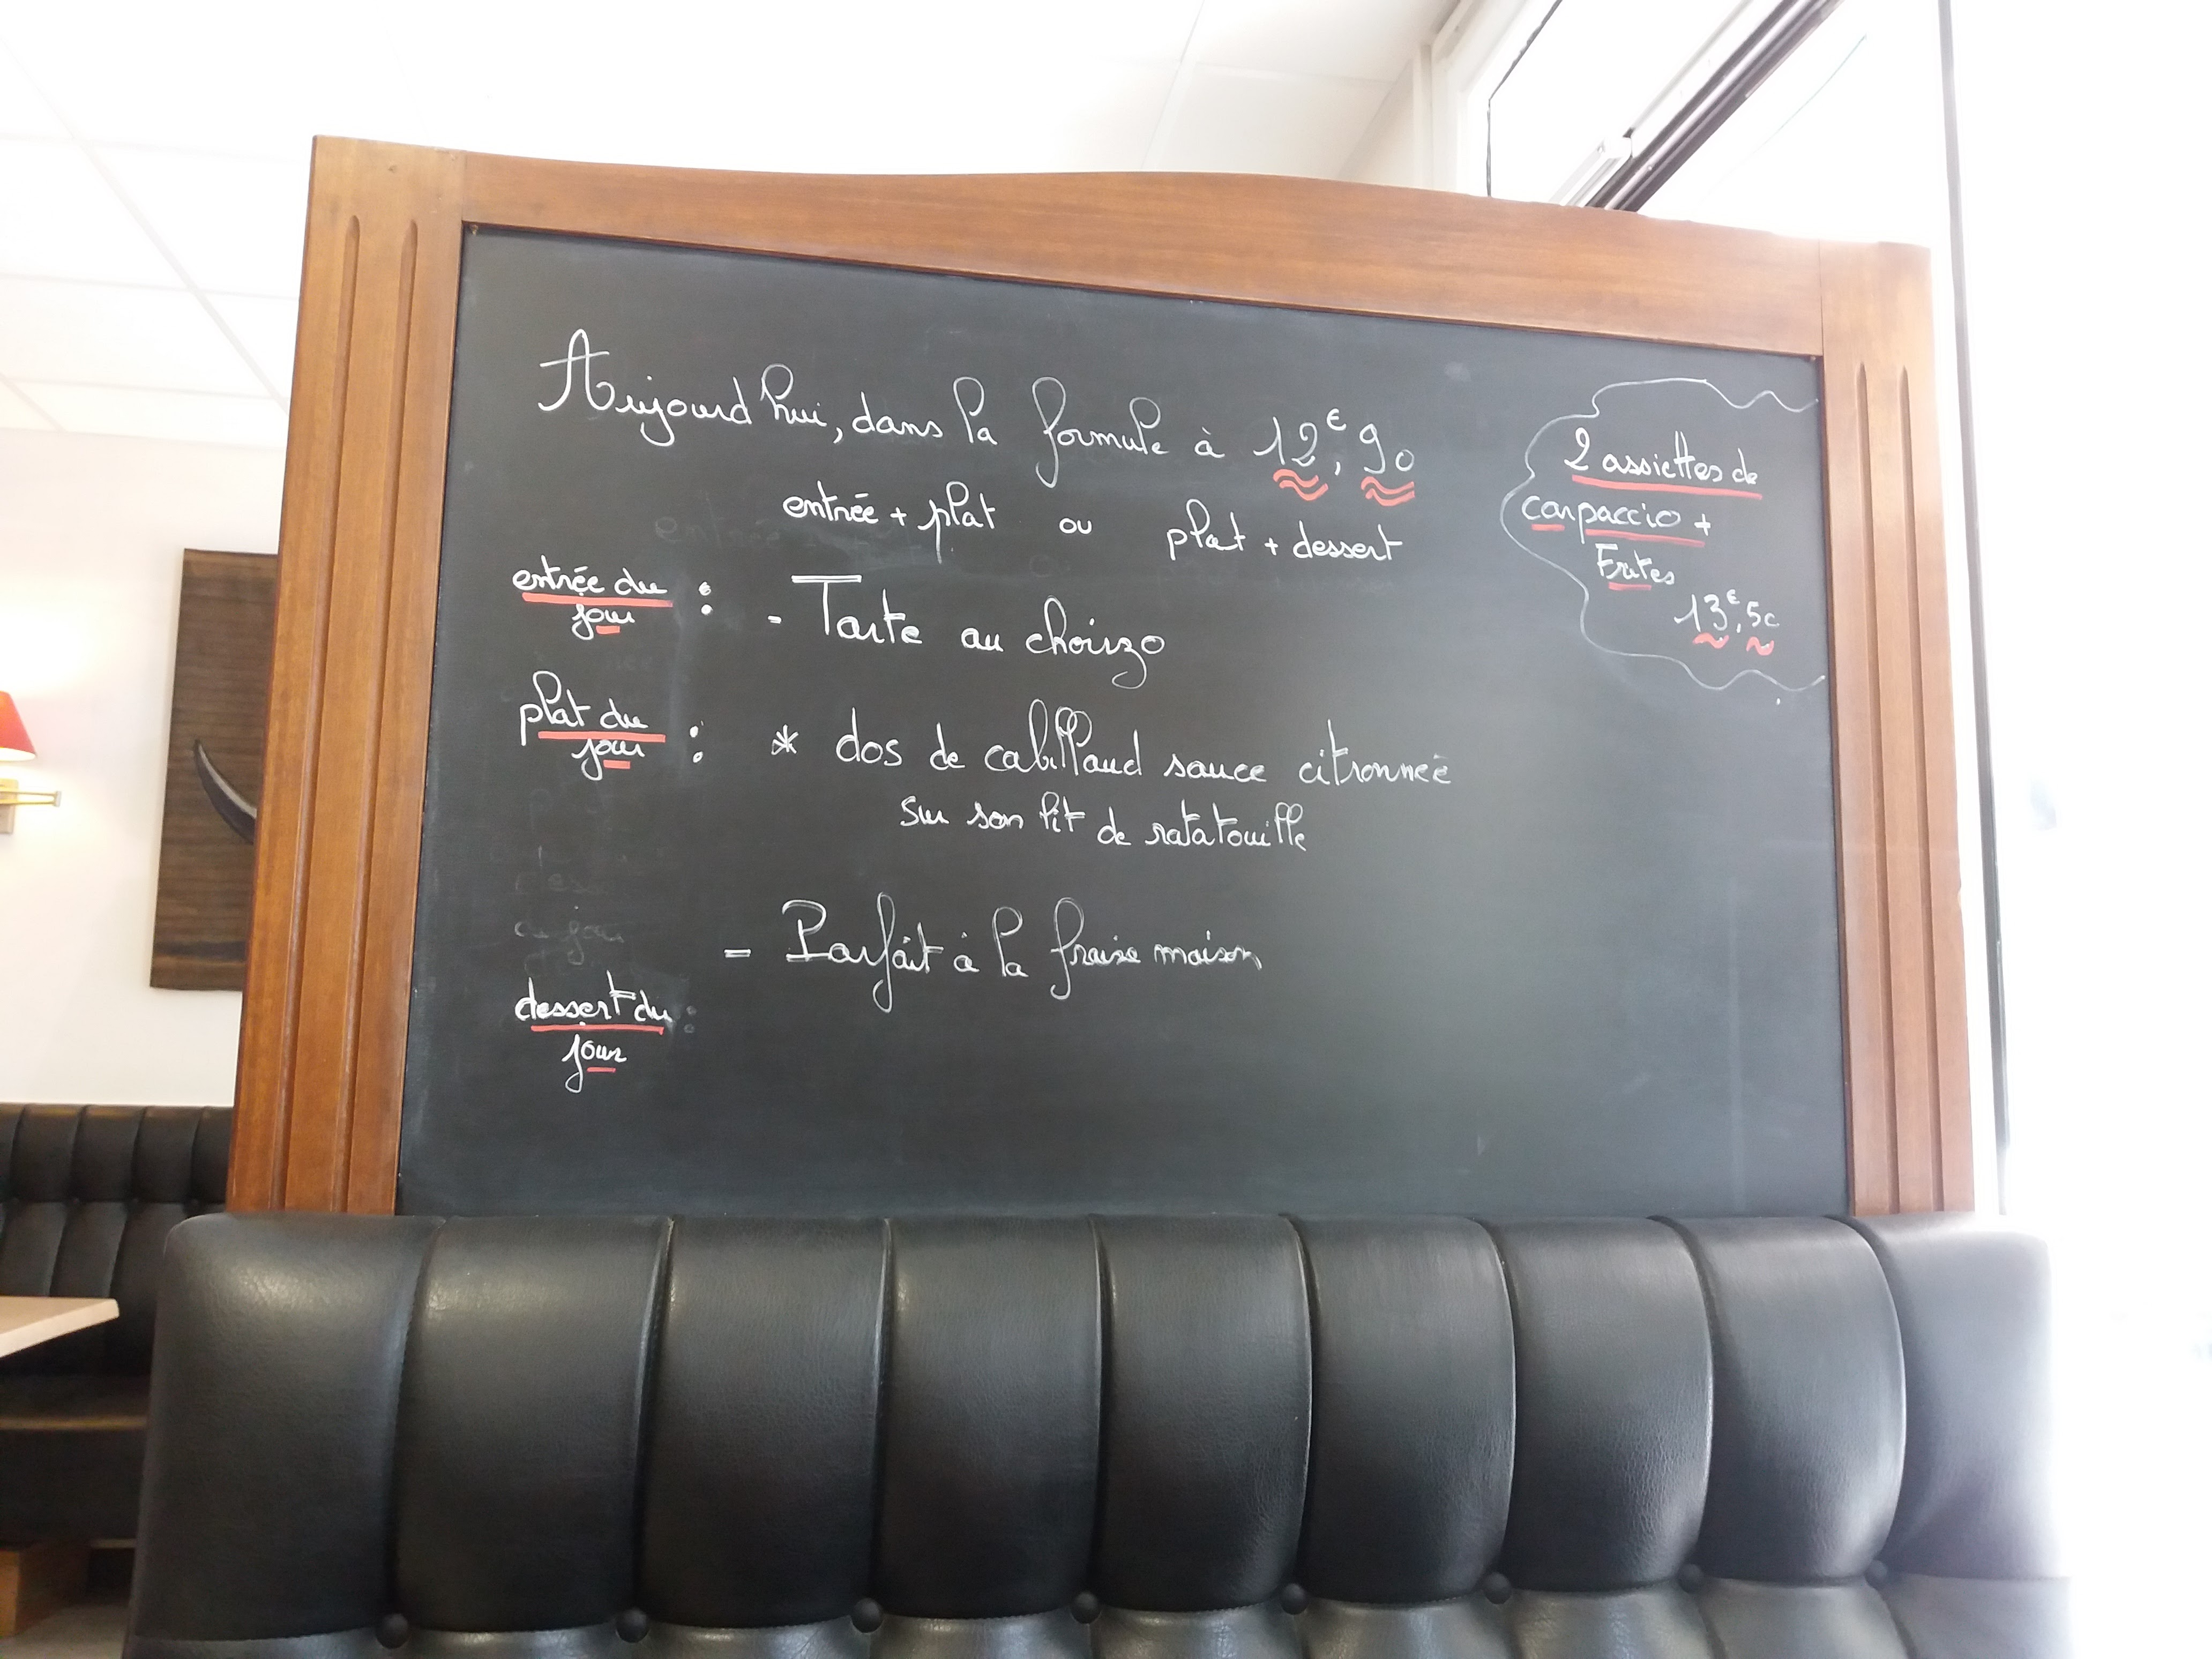 Aujourd'hui, dans la formule à 12€,90
entrée + plat ou plat + dessert
entrée du jour : - Tarte au choizo
plat du jour : * dos de cabillaud sauce citronneé
sur son lit de ratatouille
dessert du jour : = Parfait à la fraise maison
2 assiettes de
carpaccio +
Frites
13€,50